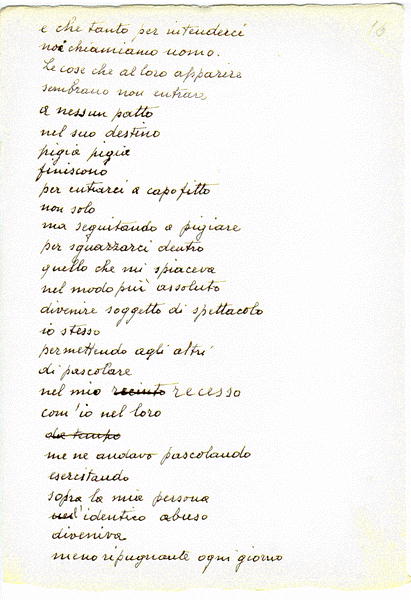 16
e che tanto per intenderci
noi chiamiamo uomo.
Le cose che al loro apparire
sembrano non entrare
a nessun patto
nel suo destino
pigia pigia
finiscono
per entrarci a capofitto
non solo
ma seguitando a pigiare
per sguazzarci dentro
quello che mi spiaceva
nel modo più assoluto
divenire soggetto di spettacolo
io stesso
permettendo agli altri
di pascolare
nel mio recinto recesso
com'io nel loro
da tempo
me ne andavo pascolando
esercitando
sopra la mia persona
l'identico abuso
diveniva
meno ripugnante ogni giorno